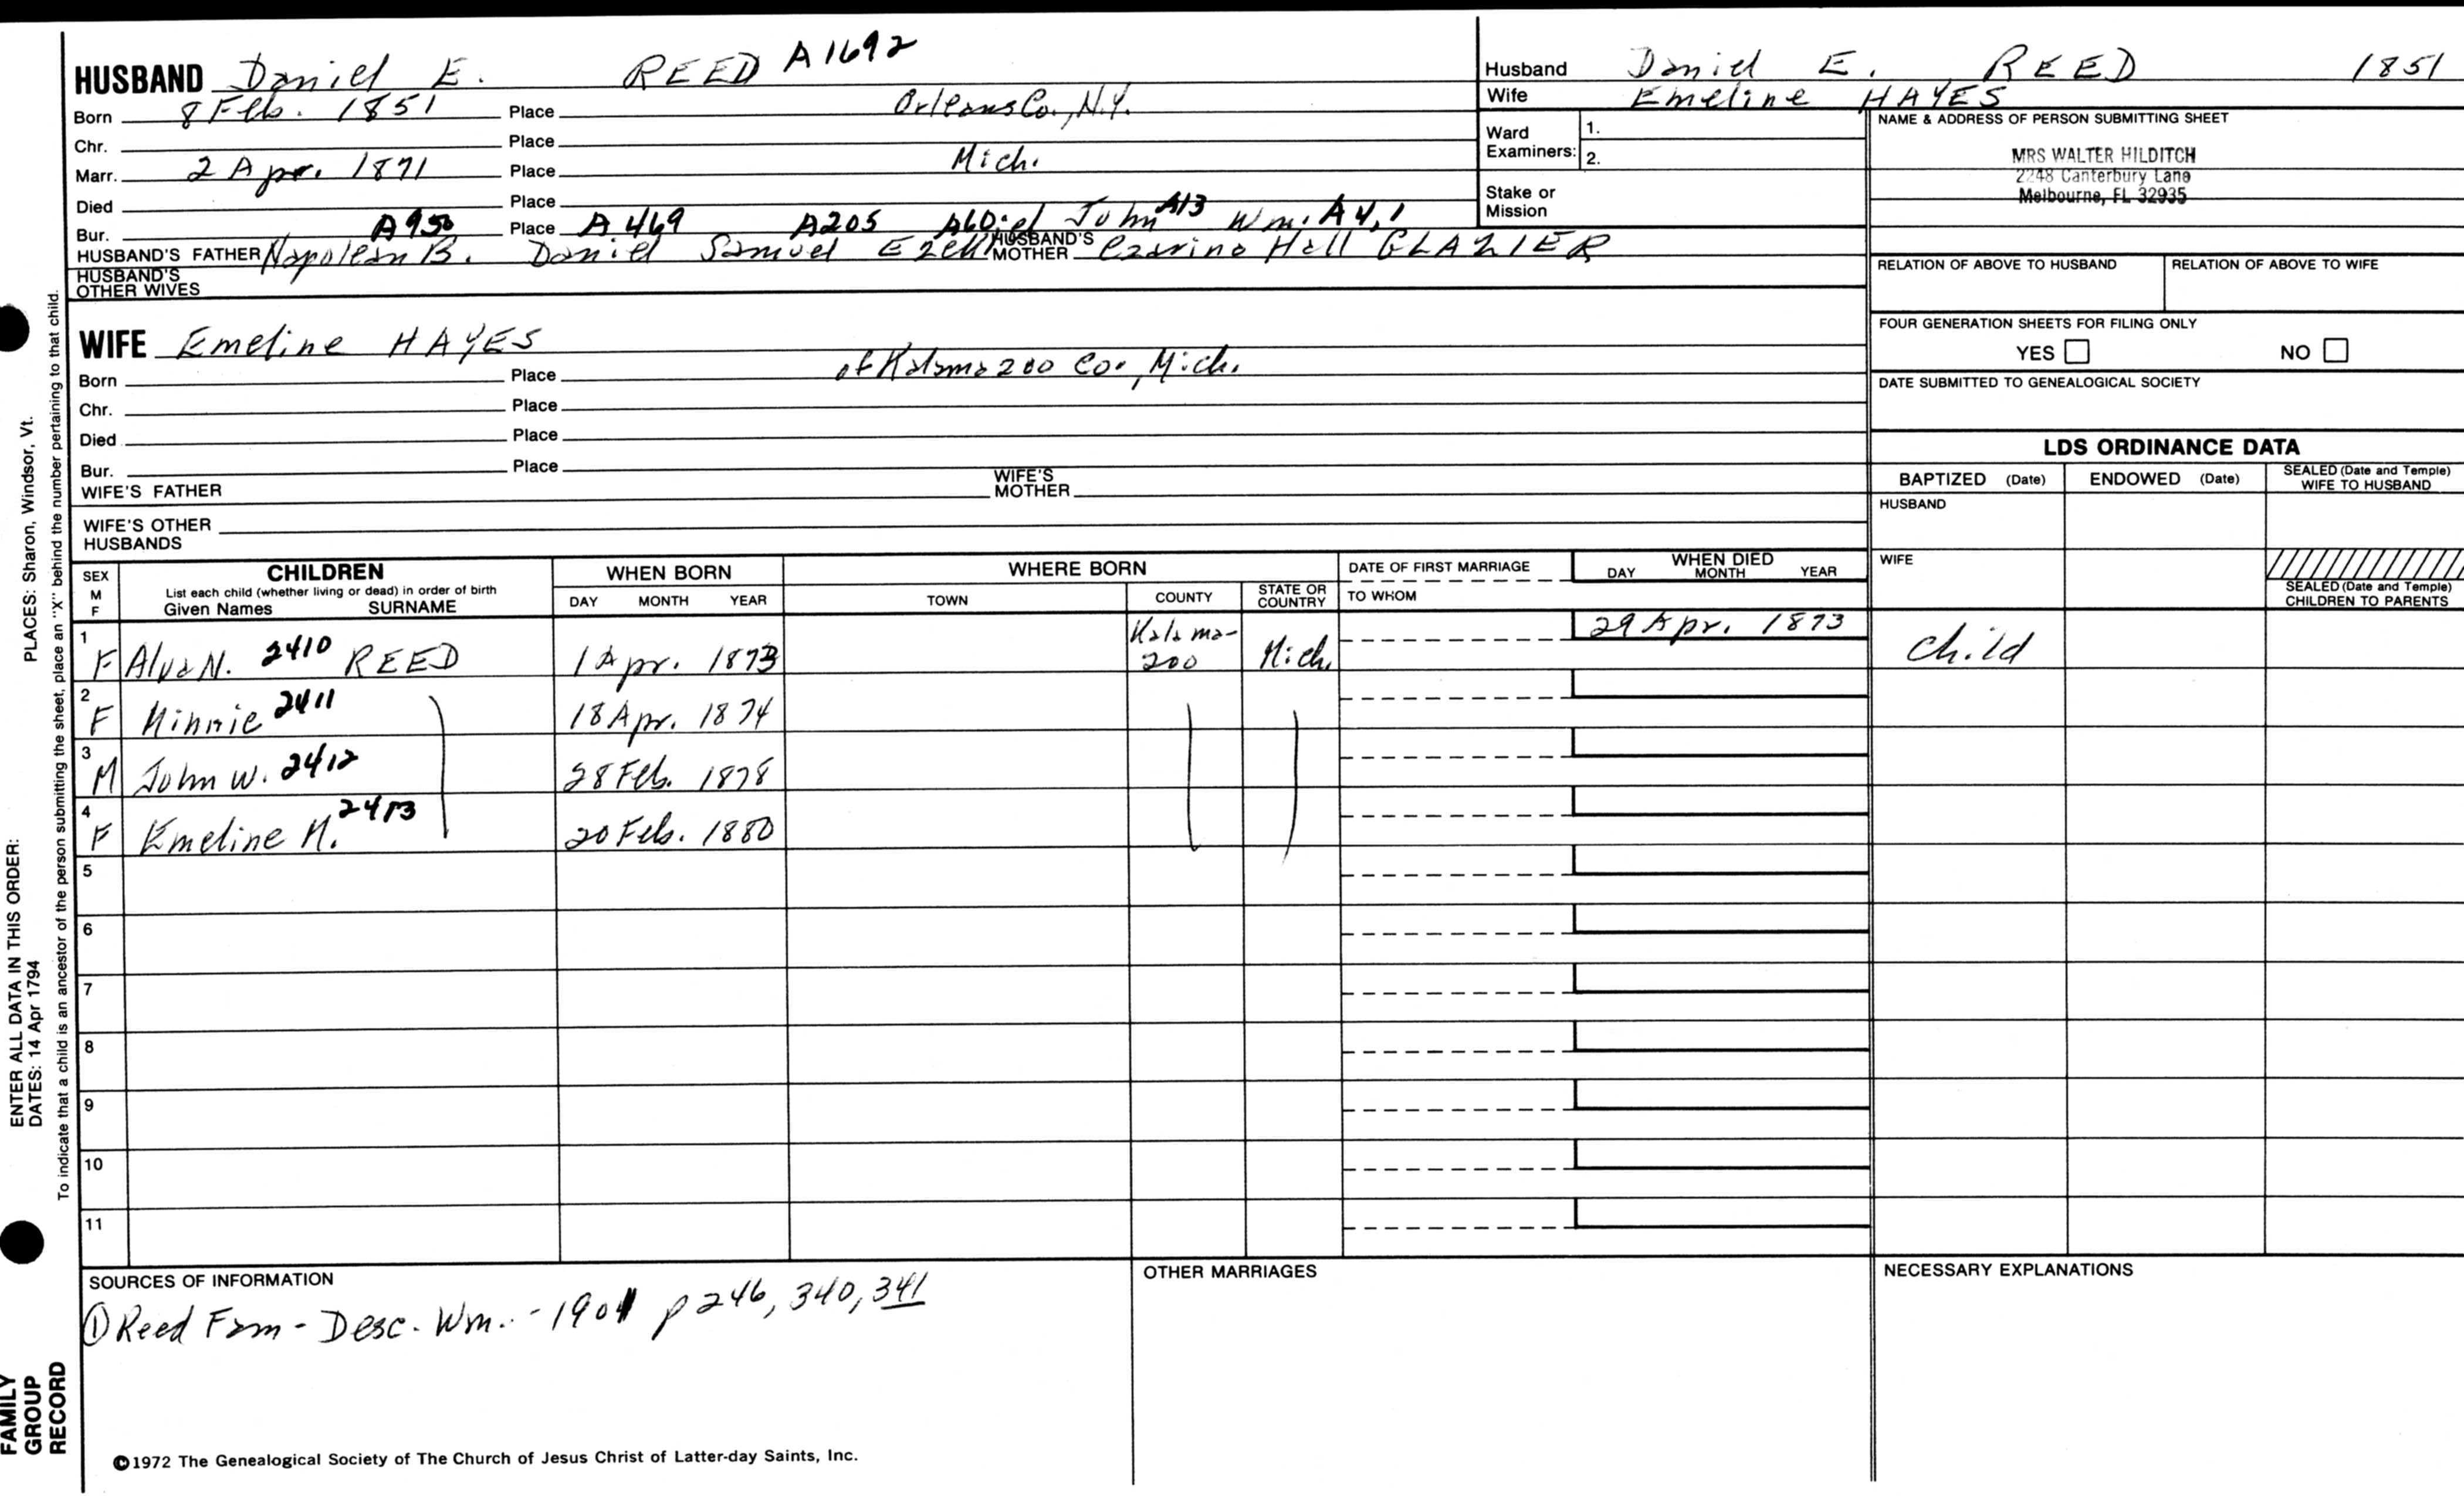 HUSBAND Daniel E. REED A1692
Born 8 Feb. 1851 Place Orleans Co., N.Y.
Chr. Place
Marr. 2 Apr. 1871 Place Mich.
Died Place
Bur. A950 Place A469 A205 A60 A13 A4,1
HUSBAND'S FATHER Napolean B. Daniel Samuel Ezekiel John Wm. HUSBAND'S MOTHER Czarina Hall GLAZIER
HUSBAND'S OTHER WIVES
Husband Daniel E. REED 1851
Wife Emeline HAYES
Ward Examiners: 1.
2.
Stake or Mission
NAME & ADDRESS OF PERSON SUBMITTING SHEET
MRS WALTER HILDITCH
2248 Canterbury Lane
Melbourne, FL 32935
RELATION OF ABOVE TO HUSBAND RELATION OF ABOVE TO WIFE
FOUR GENERATION SHEETS FOR FILING ONLY
YES NO
DATE SUBMITTED TO GENEALOGICAL SOCIETY
WIFE Emeline HAYES
Born Place of Kalamazoo Co., Mich.
Chr. Place
Died Place
Bur. Place
WIFE'S FATHER WIFE'S MOTHER
WIFE'S OTHER HUSBANDS
LDS ORDINANCE DATA
BAPTIZED (Date) ENDOWED (Date) SEALED (Date and Temple) WIFE TO HUSBAND
HUSBAND
WIFE
SEALED (Date and Temple) CHILDREN TO PARENTS
SEX M F
CHILDREN
List each child (whether living or dead) in order of birth
Given Names SURNAME
WHEN BORN
DAY MONTH YEAR
WHERE BORN
TOWN COUNTY STATE OR COUNTRY
DATE OF FIRST MARRIAGE
TO WHOM
WHEN DIED
DAY MONTH YEAR
1 F Alva N. 2410 REED 1 Apr. 1873 Kalama-zoo Mich. 29 Apr. 1873 child
2 F Minnie 2411 18 Apr. 1874
3 M John W. 2412 28 Feb. 1878
4 F Emeline M. 2413 20 Feb. 1880
5
6
7
8
9
10
11
SOURCES OF INFORMATION
① Reed Fam - Desc. Wm. - 1901 p 246, 340, 341
OTHER MARRIAGES
NECESSARY EXPLANATIONS
©1972 The Genealogical Society of The Church of Jesus Christ of Latter-day Saints, Inc.
FAMILY GROUP RECORD
ENTER ALL DATA IN THIS ORDER:
DATES: 14 Apr 1794
PLACES: Sharon, Windsor, Vt.
To indicate that a child is an ancestor of the person submitting the sheet, place an "X" behind the number pertaining to that child.